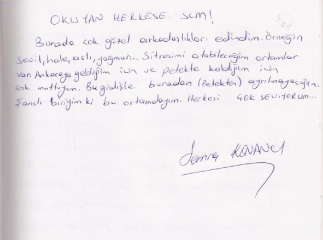 OKUYAN HERKESE SLM!
Burada çok güzel arkadaşlıklar edindim. Örneğin
Sevil, hale, aslı, yağmur... Sitresimi atabileceğim ortamlar
var. Ankaraya geldiğim için ve petekte kaldığım için
çok mutluyum. Bu gidişle buradan (Petekten) ayrılmayacağım.
Şanslı biriyim ki bu ortamdayım. Herkesi ÇOK SEVİYORUM...
KOVANCI